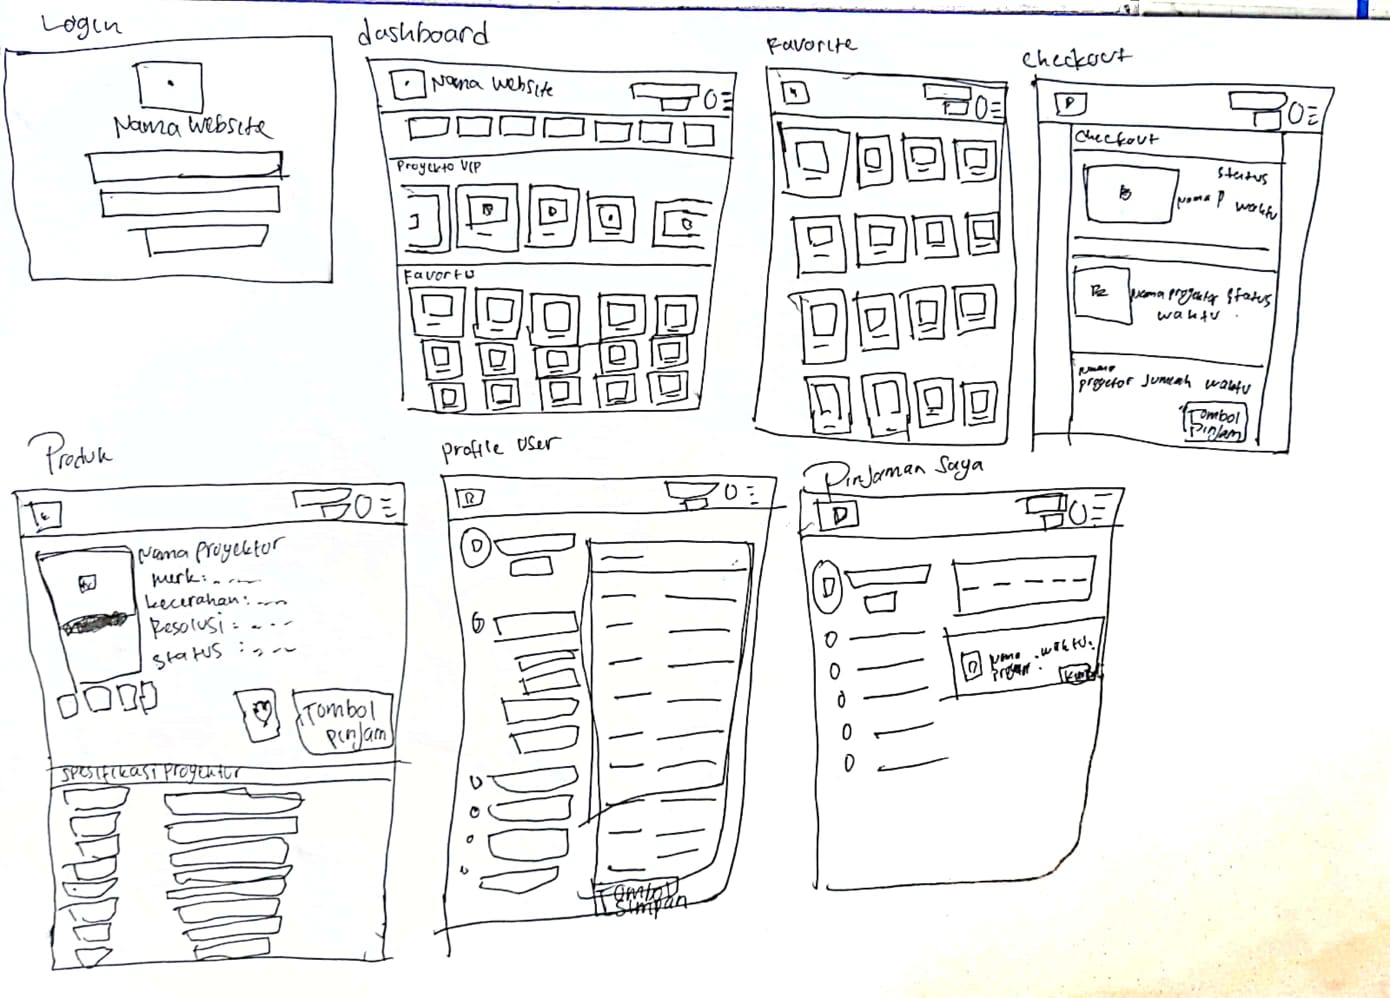 Login
Nama Website
dashboard
Nama Website
Proyekto VIP
Favorit
Favorite
Checkout
Checkout
Status
Nama P
waktu
Nama proyektor
Status
waktu
Nama
proyector
Jumlah
waktu
Tombol
Pinjam
Produk
Nama Proyektor
Merk:
kecerahan:
Resolusi:
Status :
Tombol
pinjam
Spesifikasi Proyektor
Profile User
Tombol
Simpan
Pinjaman Saya
Nama
waktu.